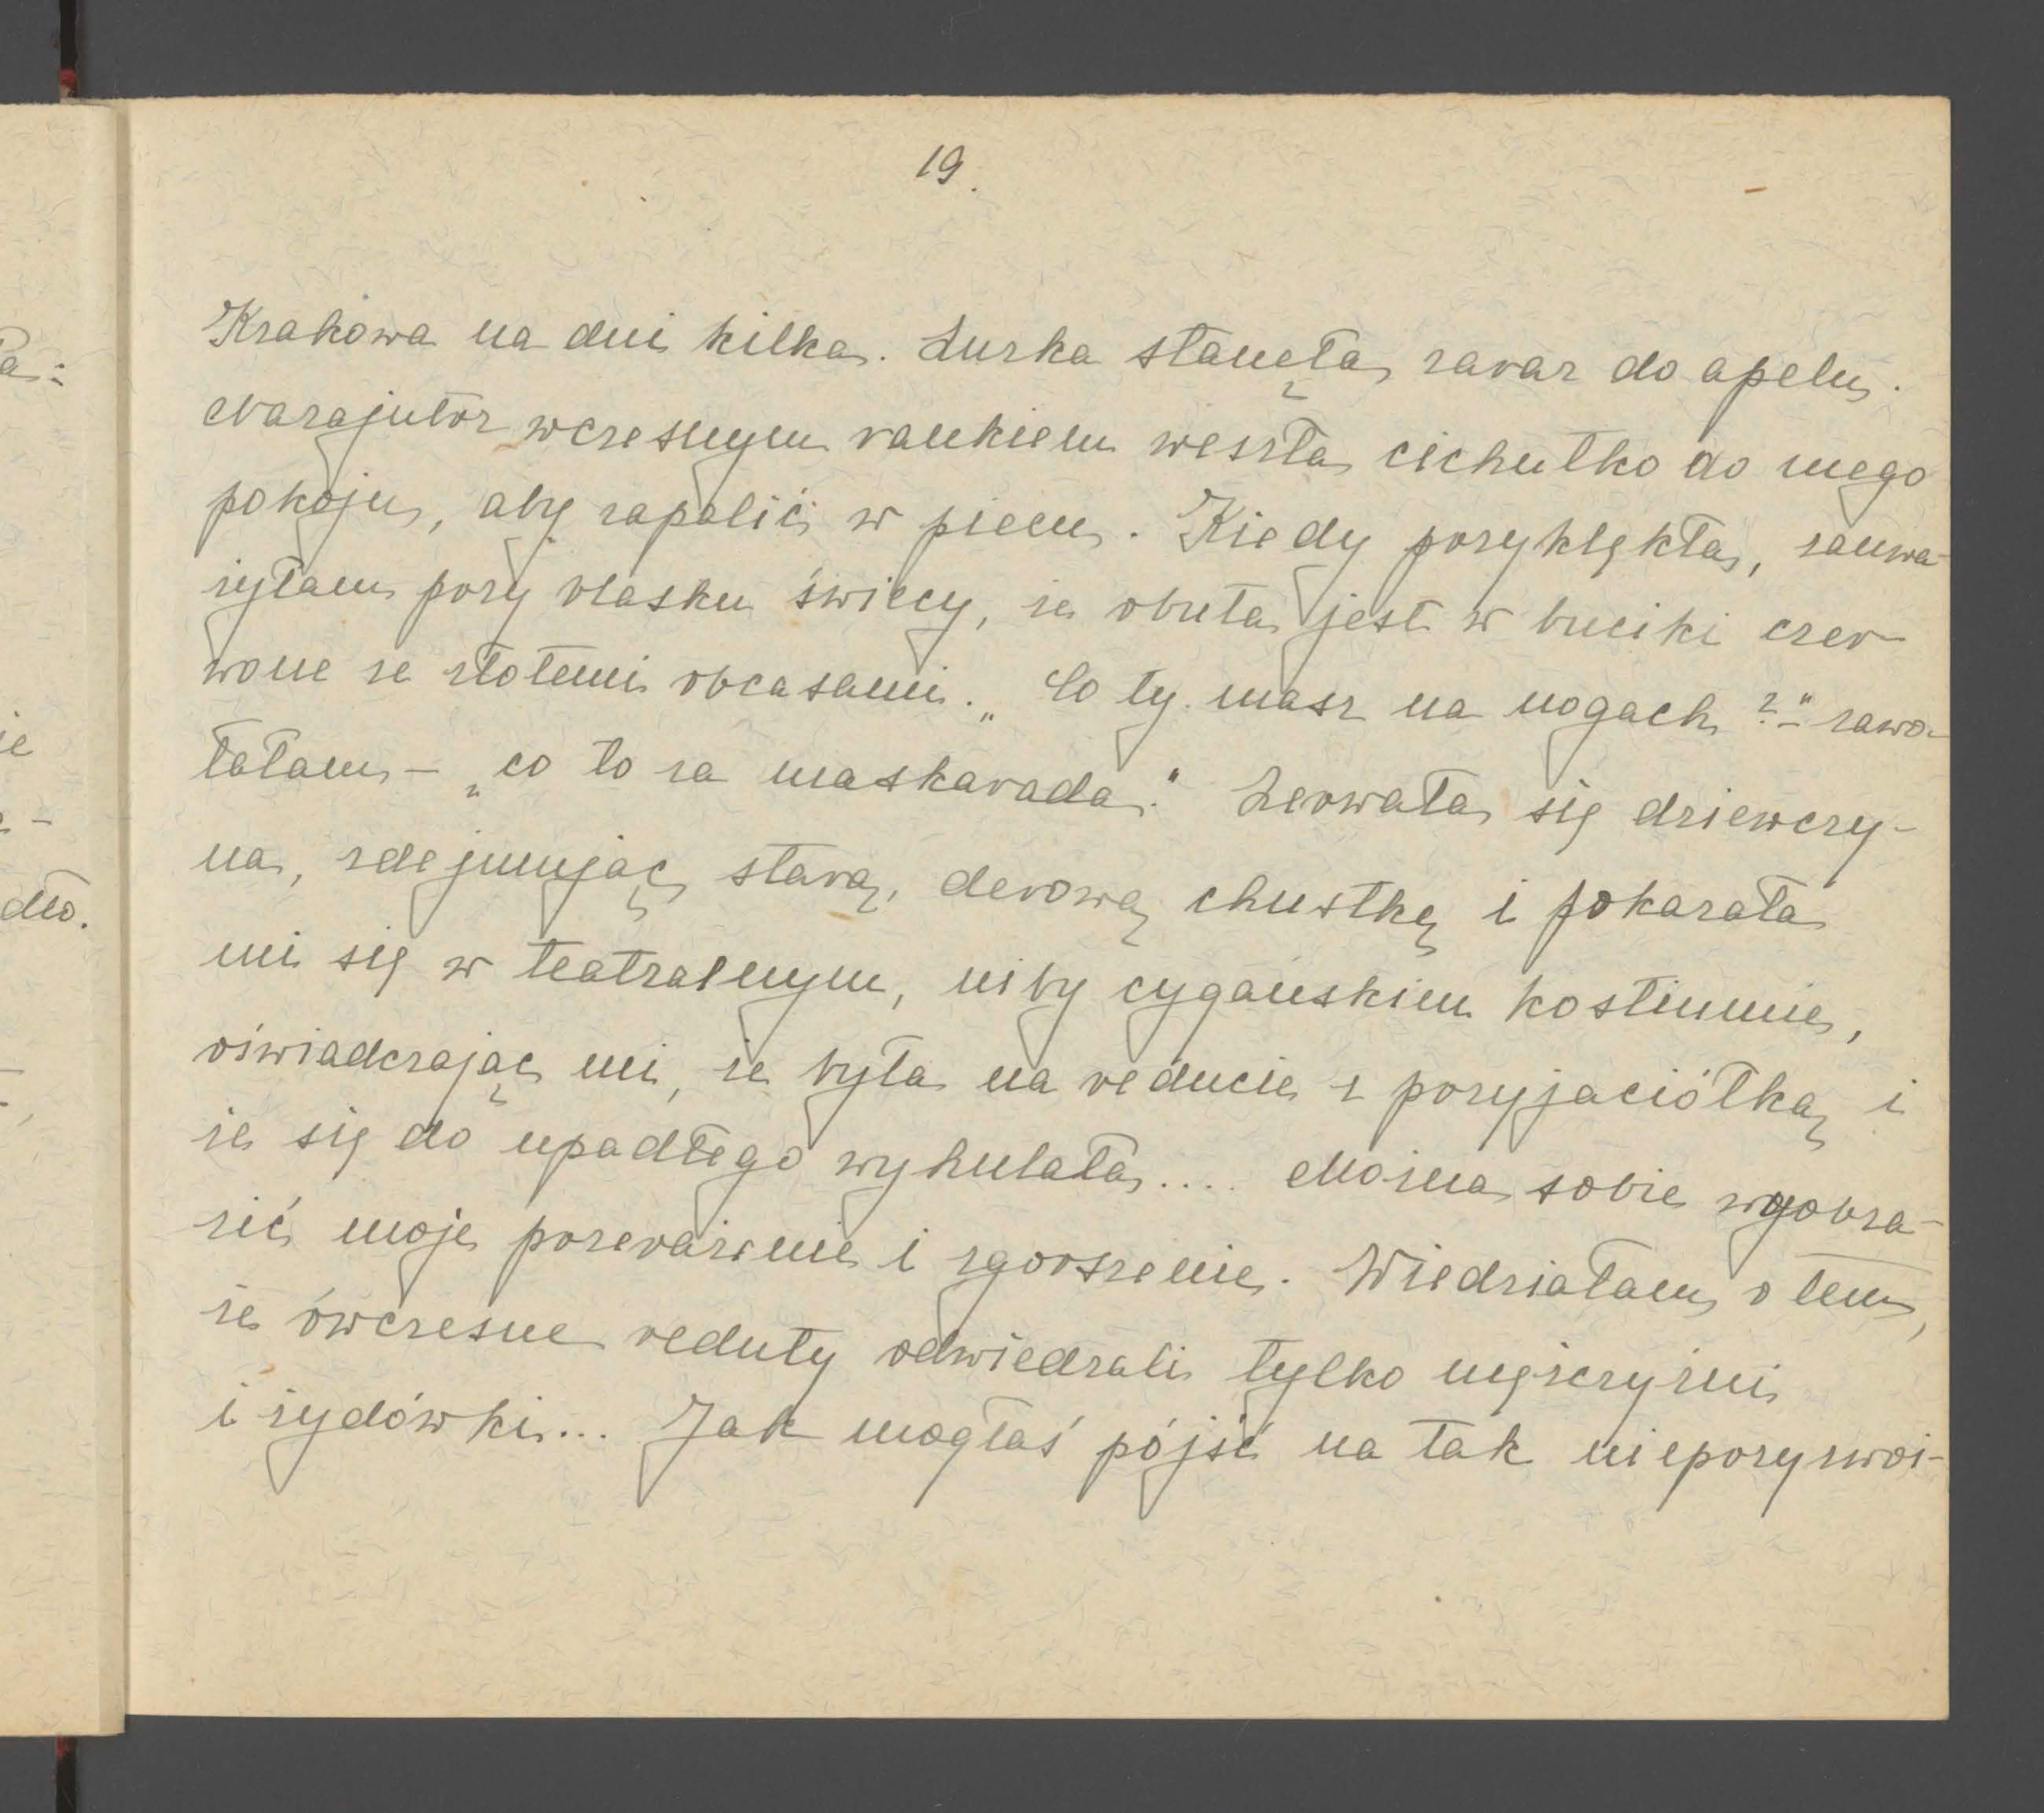 19.
Krakowa na dni kilka. Zuzka stanęła zaraz do apelu.
Nazajutrz wczesnym rankiem weszła cichutko do mego
pokoju, aby zapalić w piecu. Kiedy przyklękła, zauwa-
żyłam przy blasku świecy, że obuta jest w buciki czer-
wone ze złotemi obcasami. „Co ty masz na nogach?" - zawo-
łałam - „co to za maskarada." Zerwała się dziewczy-
na, zdejmując starą, derową chustkę i pokazała
mi się w teatralnym, niby cygańskim kostiumie,
oświadczając mi, że była na reducie z przyjaciółką i
że się do upadłego wyhulała.... Można sobie wyobra-
zić moje przerażenie i zgorszenie. Wiedziałam o tem,
że ówczesne reduty odwiedzali tylko mężczyźni
i żydówki... Jak mogłaś pójść na tak nieprzyzwoi-
a:
ie
-
dło.